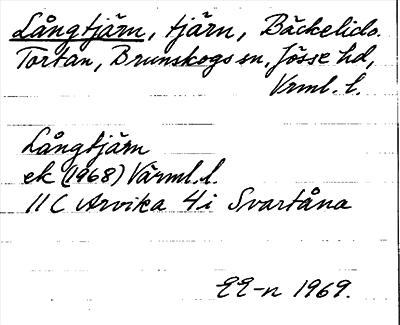 Långtjärn, tjärn, Bäckelido.
Tortan, Brunskogs sn, Jösse hd,
Vrml. l.
Långtjärn
ek (1968) Värml. l.
11C Arvika 4i Svartåna
EE-n 1969.